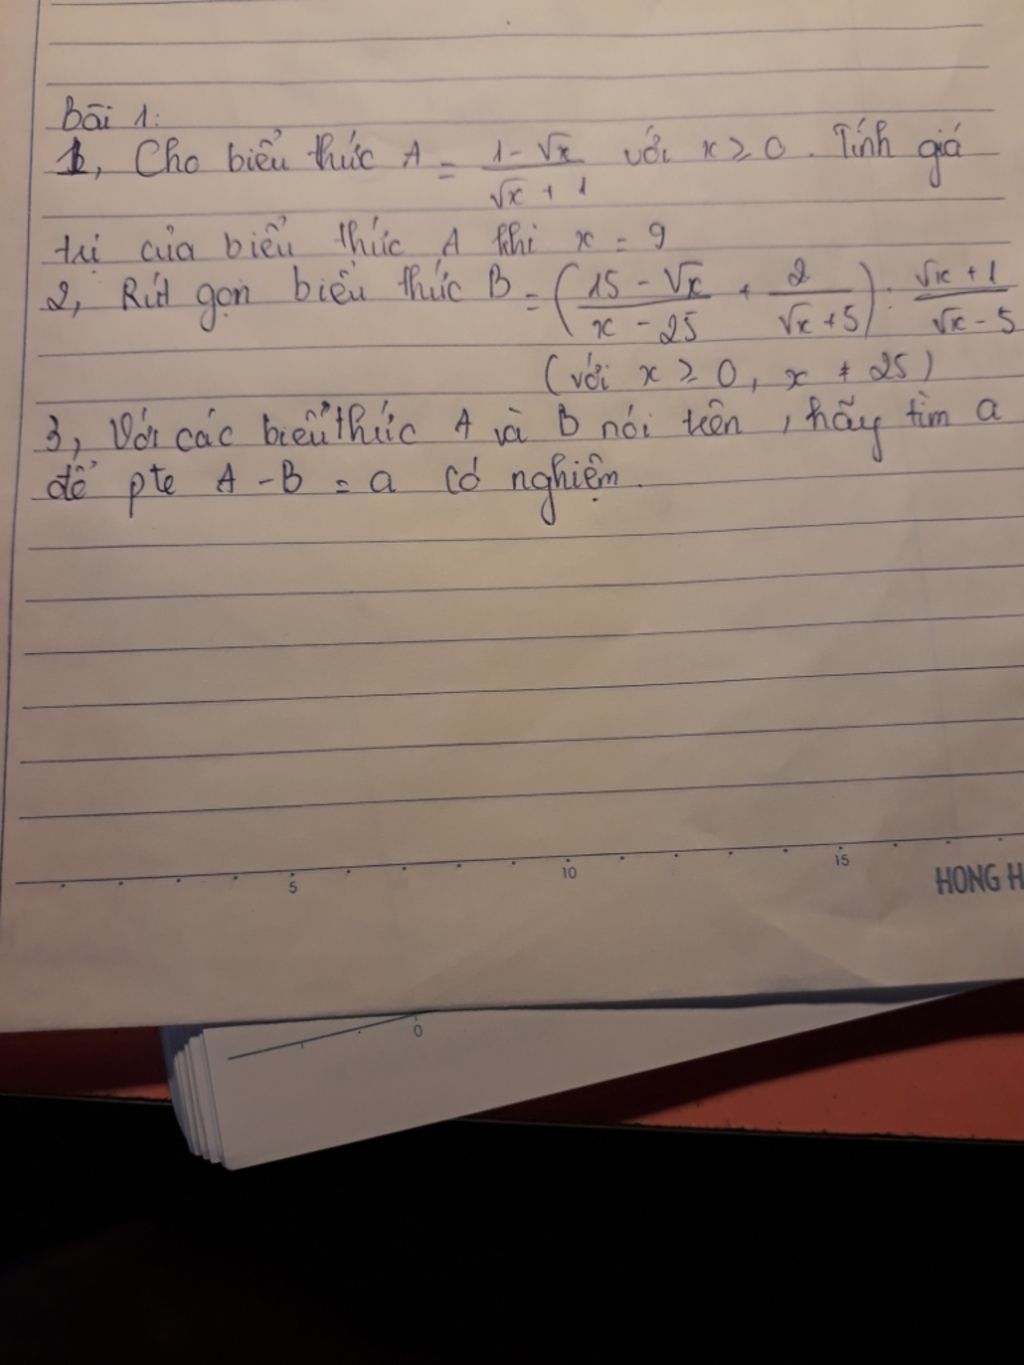 Bài 1:
1, Cho biểu thức A = (1 - √x)/(√x + 1) với x ≥ 0. Tính giá
trị của biểu thức A khi x = 9
2, Rút gọn biểu thức B = ((15 - √x)/(x - 25) + 2/(√x + 5)) : (√x + 1)/(√x - 5)
(với x ≥ 0, x ≠ 25)
3, Với các biểu thức A và B nói trên, hãy tìm a
để pte A - B = a có nghiệm.
5 10 15
HONG H
0